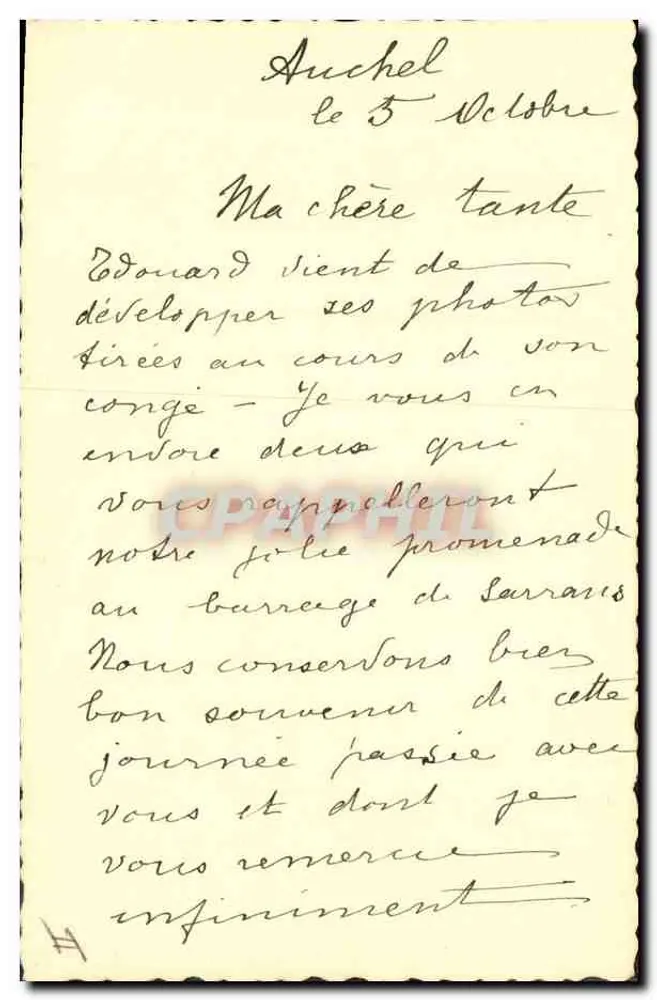 Auchel
le 5 Octobre
Ma chère tante
Edouard vient de
développer ses photos
tirées au cours de son
congé - Je vous en
envoie deux qui
vous rappelleront
CPAPHIL
notre jolie promenade
au barrage de Sarrans
Nous conservons bien
bon souvenir de cette
journée passée avec
vous et dont je
vous remercie
infiniment